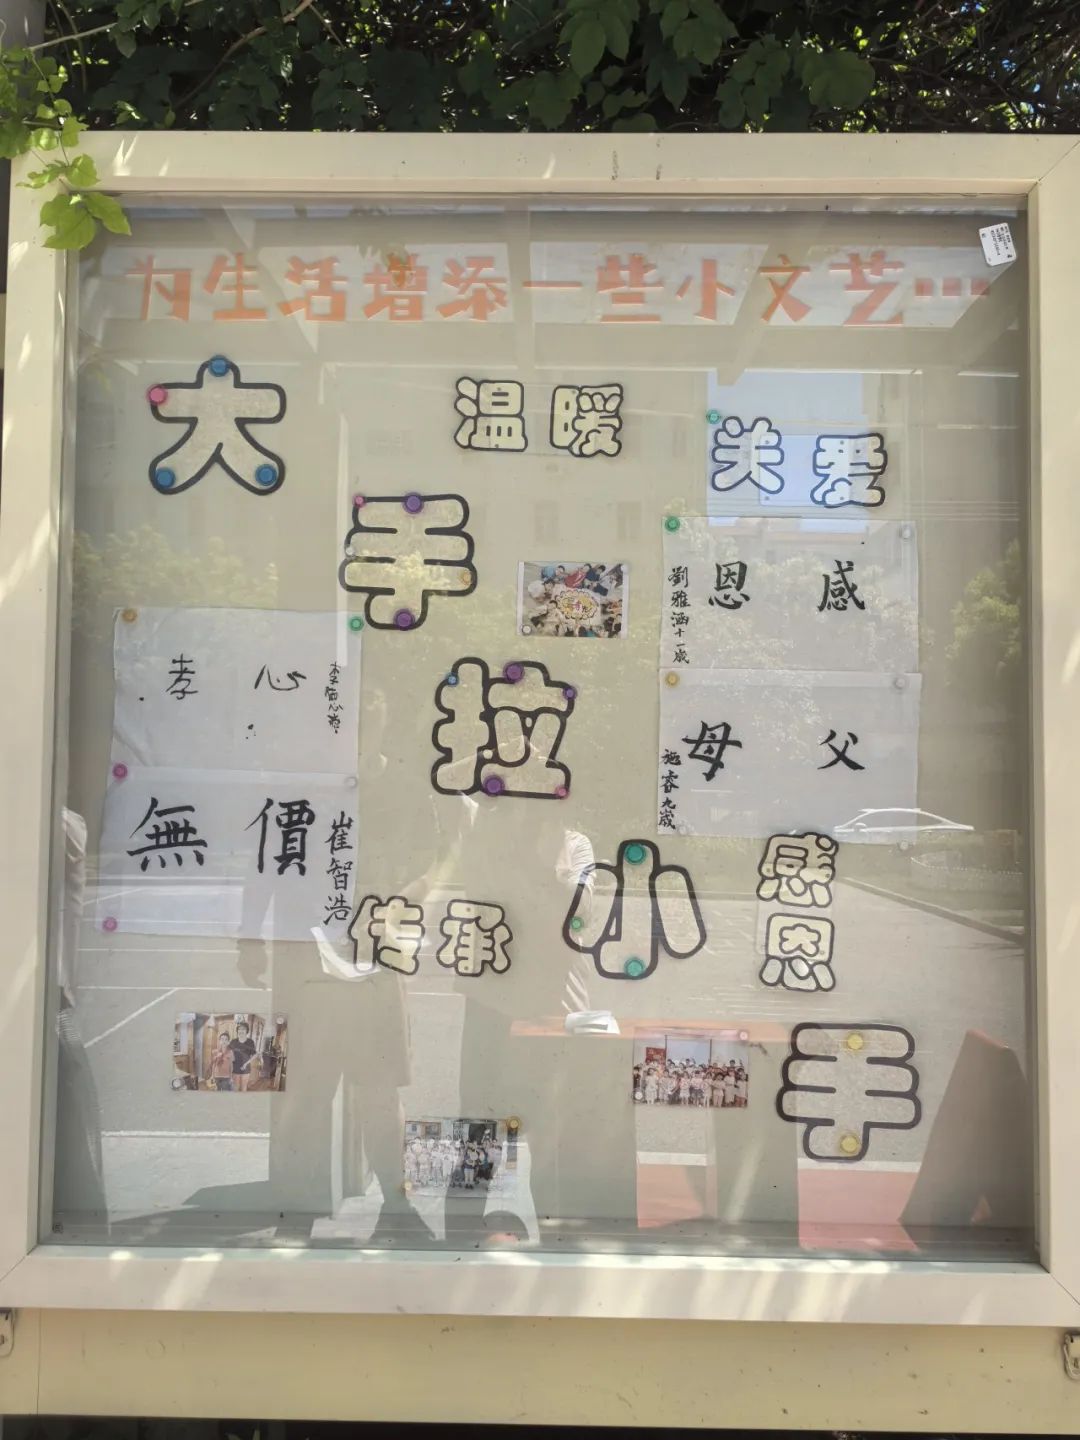 为生活增添一些小文艺…
大手拉小手
温暖
关爱
感恩
劉雅涵十一歲
父母
施睿九歲
孝心
無價
崔智浩
传承
感恩